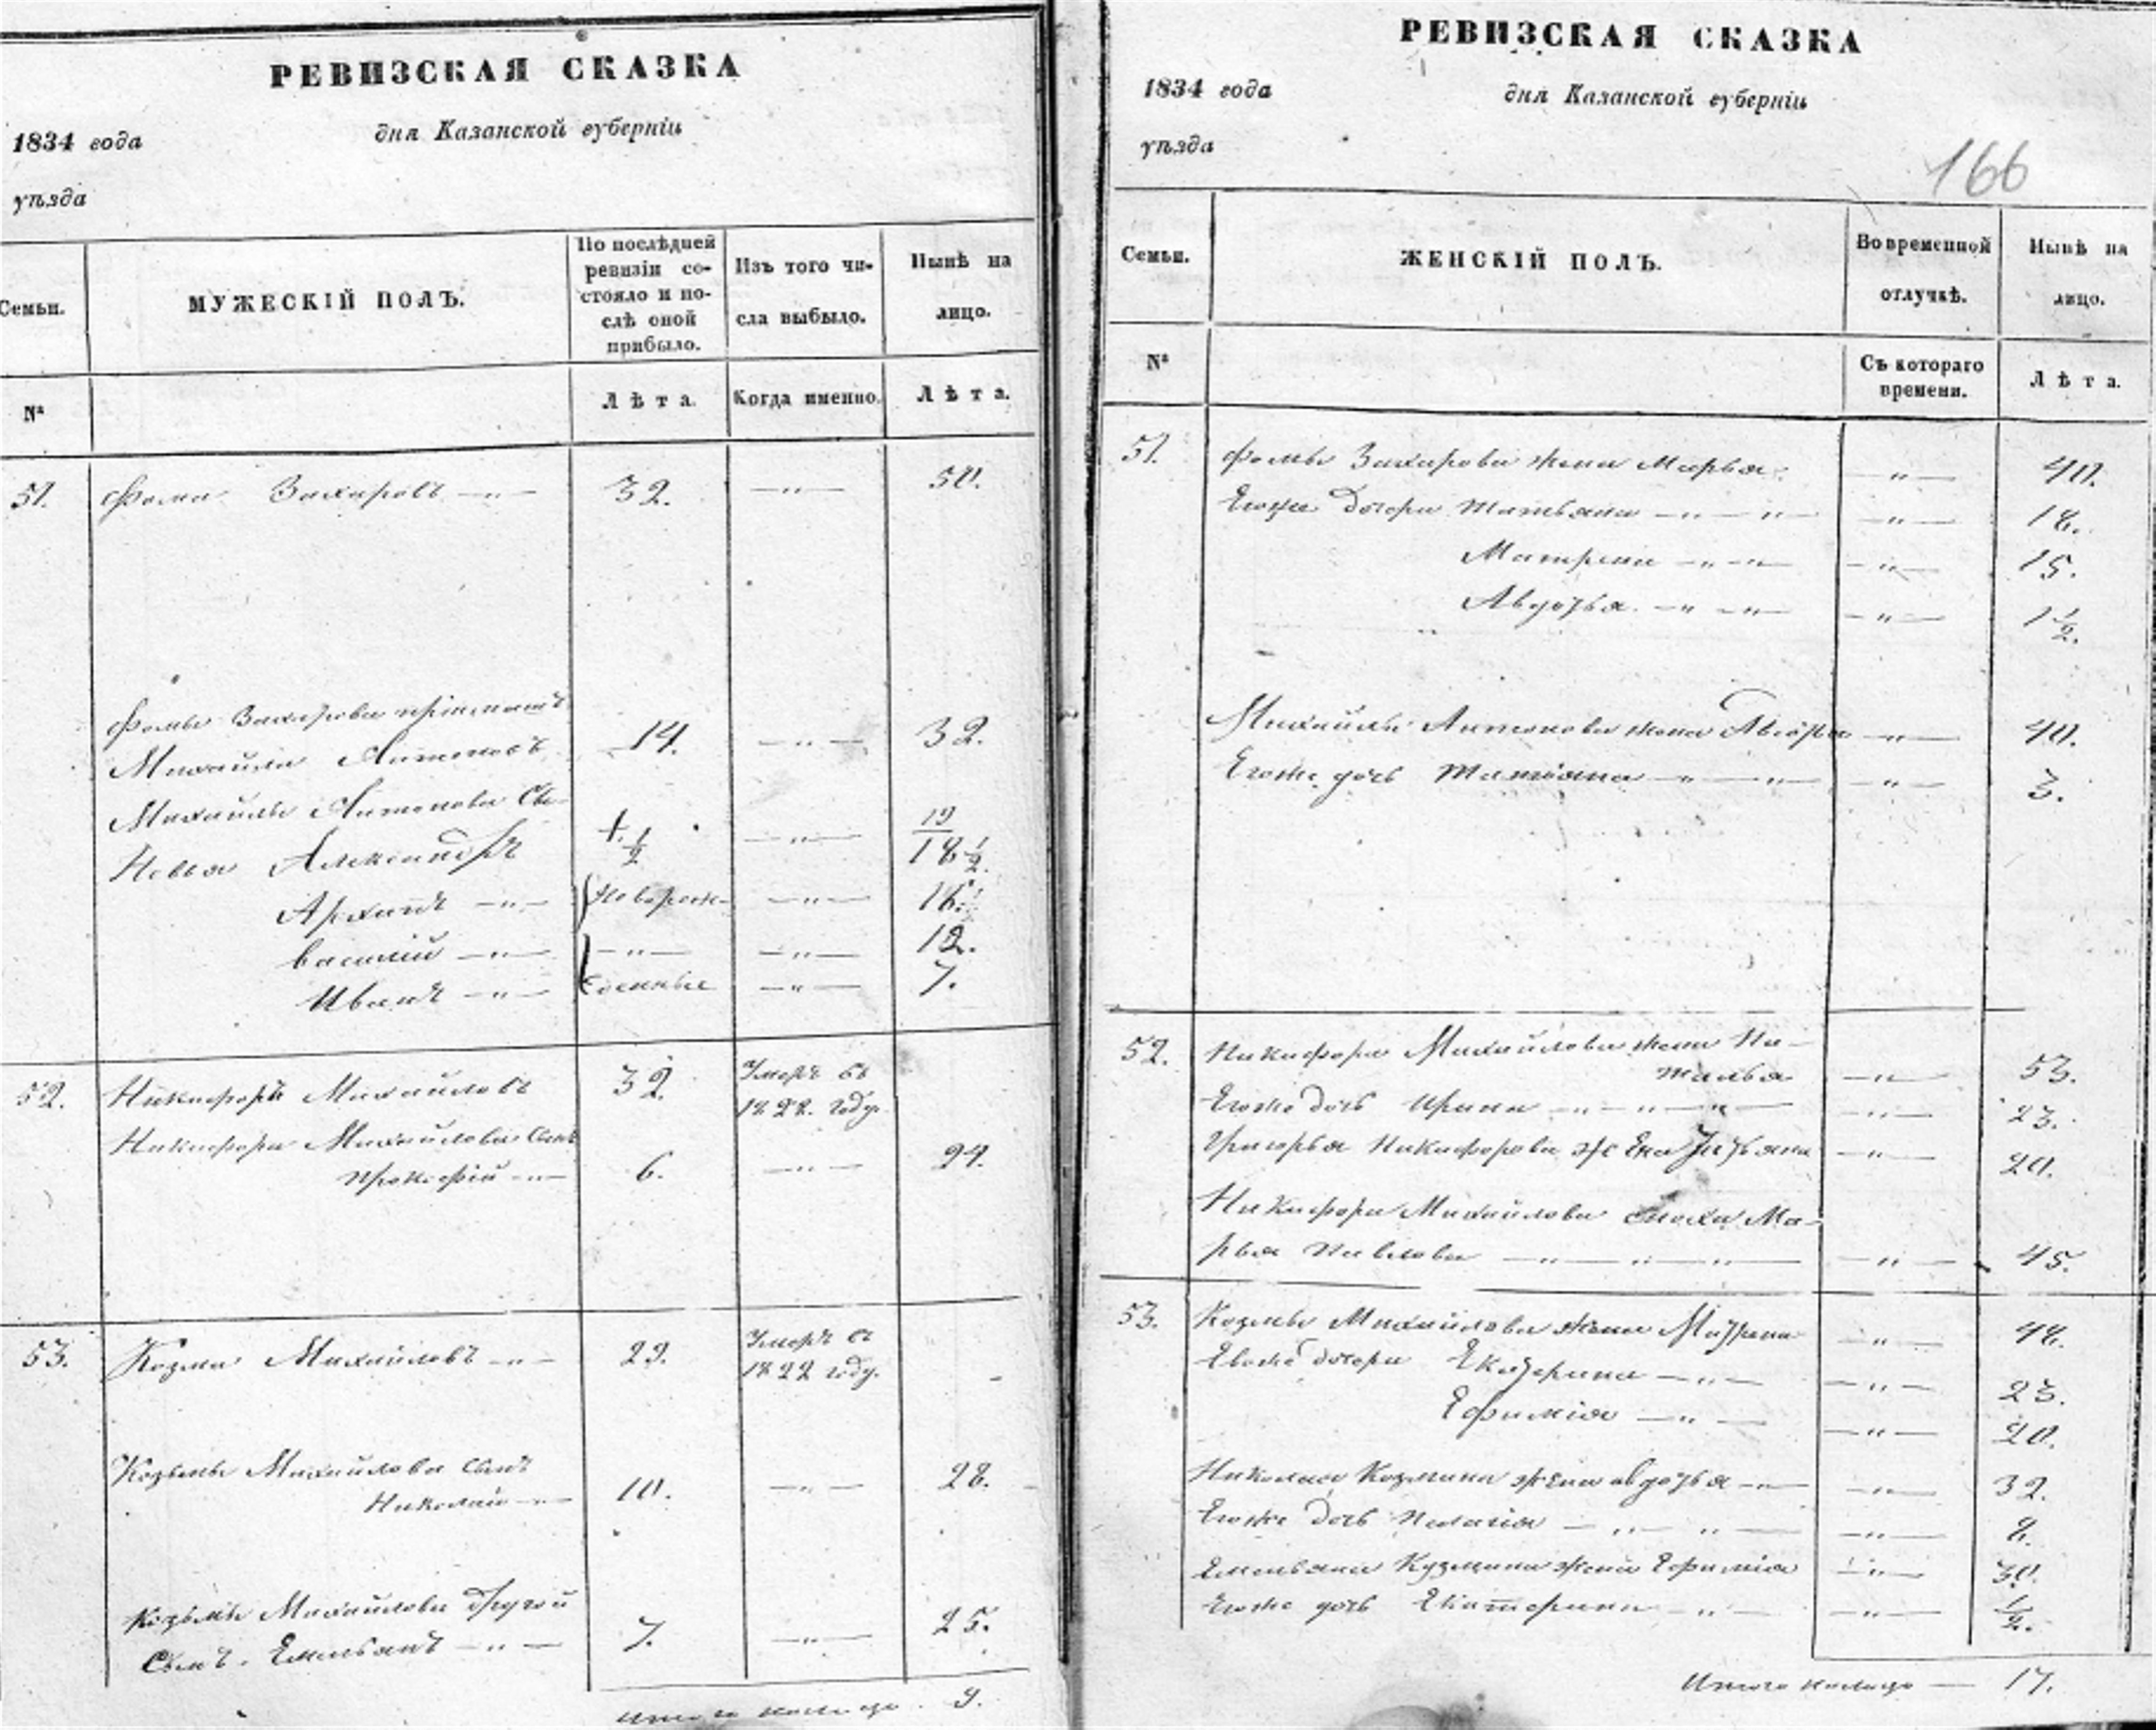 РЕВИЗСКАЯ СКАЗКА
1834 года
дня Казанской губерніи
уѣзда
Семьи.
МУЖЕСКІЙ ПОЛЪ.
По послѣдней
ревизіи со-
стояло и по-
слѣ оной
прибыло.
Изъ того чи-
сла выбыло.
Нынѣ на
лицо.
№
Лѣта.
Когда именно.
Лѣта.
51. Фома Захаровъ —„— 32. —„— 50.
Фомы Захарова
Михайла Антоновъ 14. —„— 32.
Михайлы Антонова Сы-
новья Александръ ½ —„— 19
18½.
Архипъ —„— Новорож- —„— 16.
Василій —„— —„— —„— 12.
Иванъ —„— денные —„— 7.
52. Никифоръ Михайловъ 32. Умеръ въ
1828. году.
Никифора Михайлова Сынъ
Прокофій —„— 6. —„— 24.
53. Козма Михайловъ —„— 29. Умеръ въ
1822 году. -
Козьмы Михайлова Сынъ
Николай —„— 10. —„— 28.
Козьмы Михайлова другой
Сынъ. Емельянъ —„— 7. —„— 25.
Итого налицо . 9.
РЕВИЗСКАЯ СКАЗКА
1834 года
дня Казанской губерніи
уѣзда
166
Семьи.
ЖЕНСКІЙ ПОЛЪ.
Во временной
отлучкѣ.
Нынѣ на
лицо.
№
Съ котораго
времени.
Лѣта.
51. Фомы Захарова жена Марья —„— 40.
Егоже дочери Татьяна —„—„— —„— 18.
Матрена —„—„— —„— 15.
Авдотья —„—„— —„— 1½.
Михайлы Антонова жена —„— 40.
Егоже дочь Татіана —„—„— —„— 3.
52. Никифора Михайлова жена На-
талья —„— 53.
Егоже дочь Ирина —„—„—„— —„— 23.
Григорья Никифорова жена Татьяна —„— 20.
Никифора Михайлова сноха Ма-
рья Павлова —„—„—„— —„— 45.
53. Козмы Михайлова жена Матрена —„— 48.
Егоже дочери Екатерина —„— —„— 23.
Ефимія —„— —„— 20.
Николая Козмина жена Авдотья —„— —„— 32.
Егоже дочь Пелагія —„—„— —„— 2.
Емельяна Кузмина жена Ефимія —„— 30.
Егоже дочь Екатерина —„— —„— ½.
Итого налицо — 17.